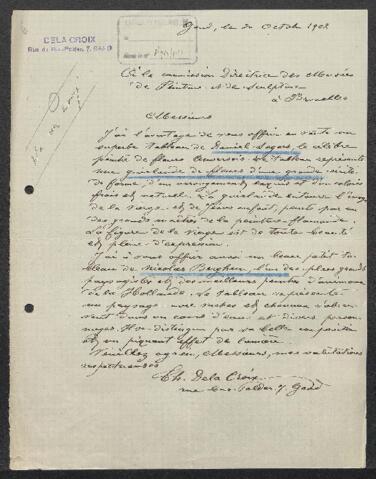 DELA CROIX
Rue du Bas-Polder, 7, GAND
Gand, le 20 Octob. 1902
A la commission Directrice des Musées
de Peinture et de Sculpture
à Bruxelles
Messieurs
J'ai l'avantage de vous offrir en vente un
superbe tableau de Daniel Segers, le célèbre
peintre de fleurs Anversois. Le tableau représente
une guirlande de fleurs d'une grande
de forme, d'un arrangement exquis et d'un coloris
frais et naturel. La guirlande entoure l'image
de la Vierge et de Jésus enfant, peints par un
des grands maîtres de la peinture flamande.
La figure de la Vierge est de toute beauté
et pleine d'expression.
J'ai à vous offrir aussi un beau petit ta-
bleau de Nicolas Berghem, l'un des plus grands
paysagistes et des meilleurs peintres d'animaux
de la Hollande. Le tableau représente
un paysage, une vaches et chevaux s'abreu-
vent dans un cours d'eau et divers person-
nages. Il se distingue par sa belle composition
et un piquant effet de lumière.
Veuillez agréer, Messieurs, mes salutations
respectueuses
Ch. Dela Croix
rue bas-Polder, 7 Gand